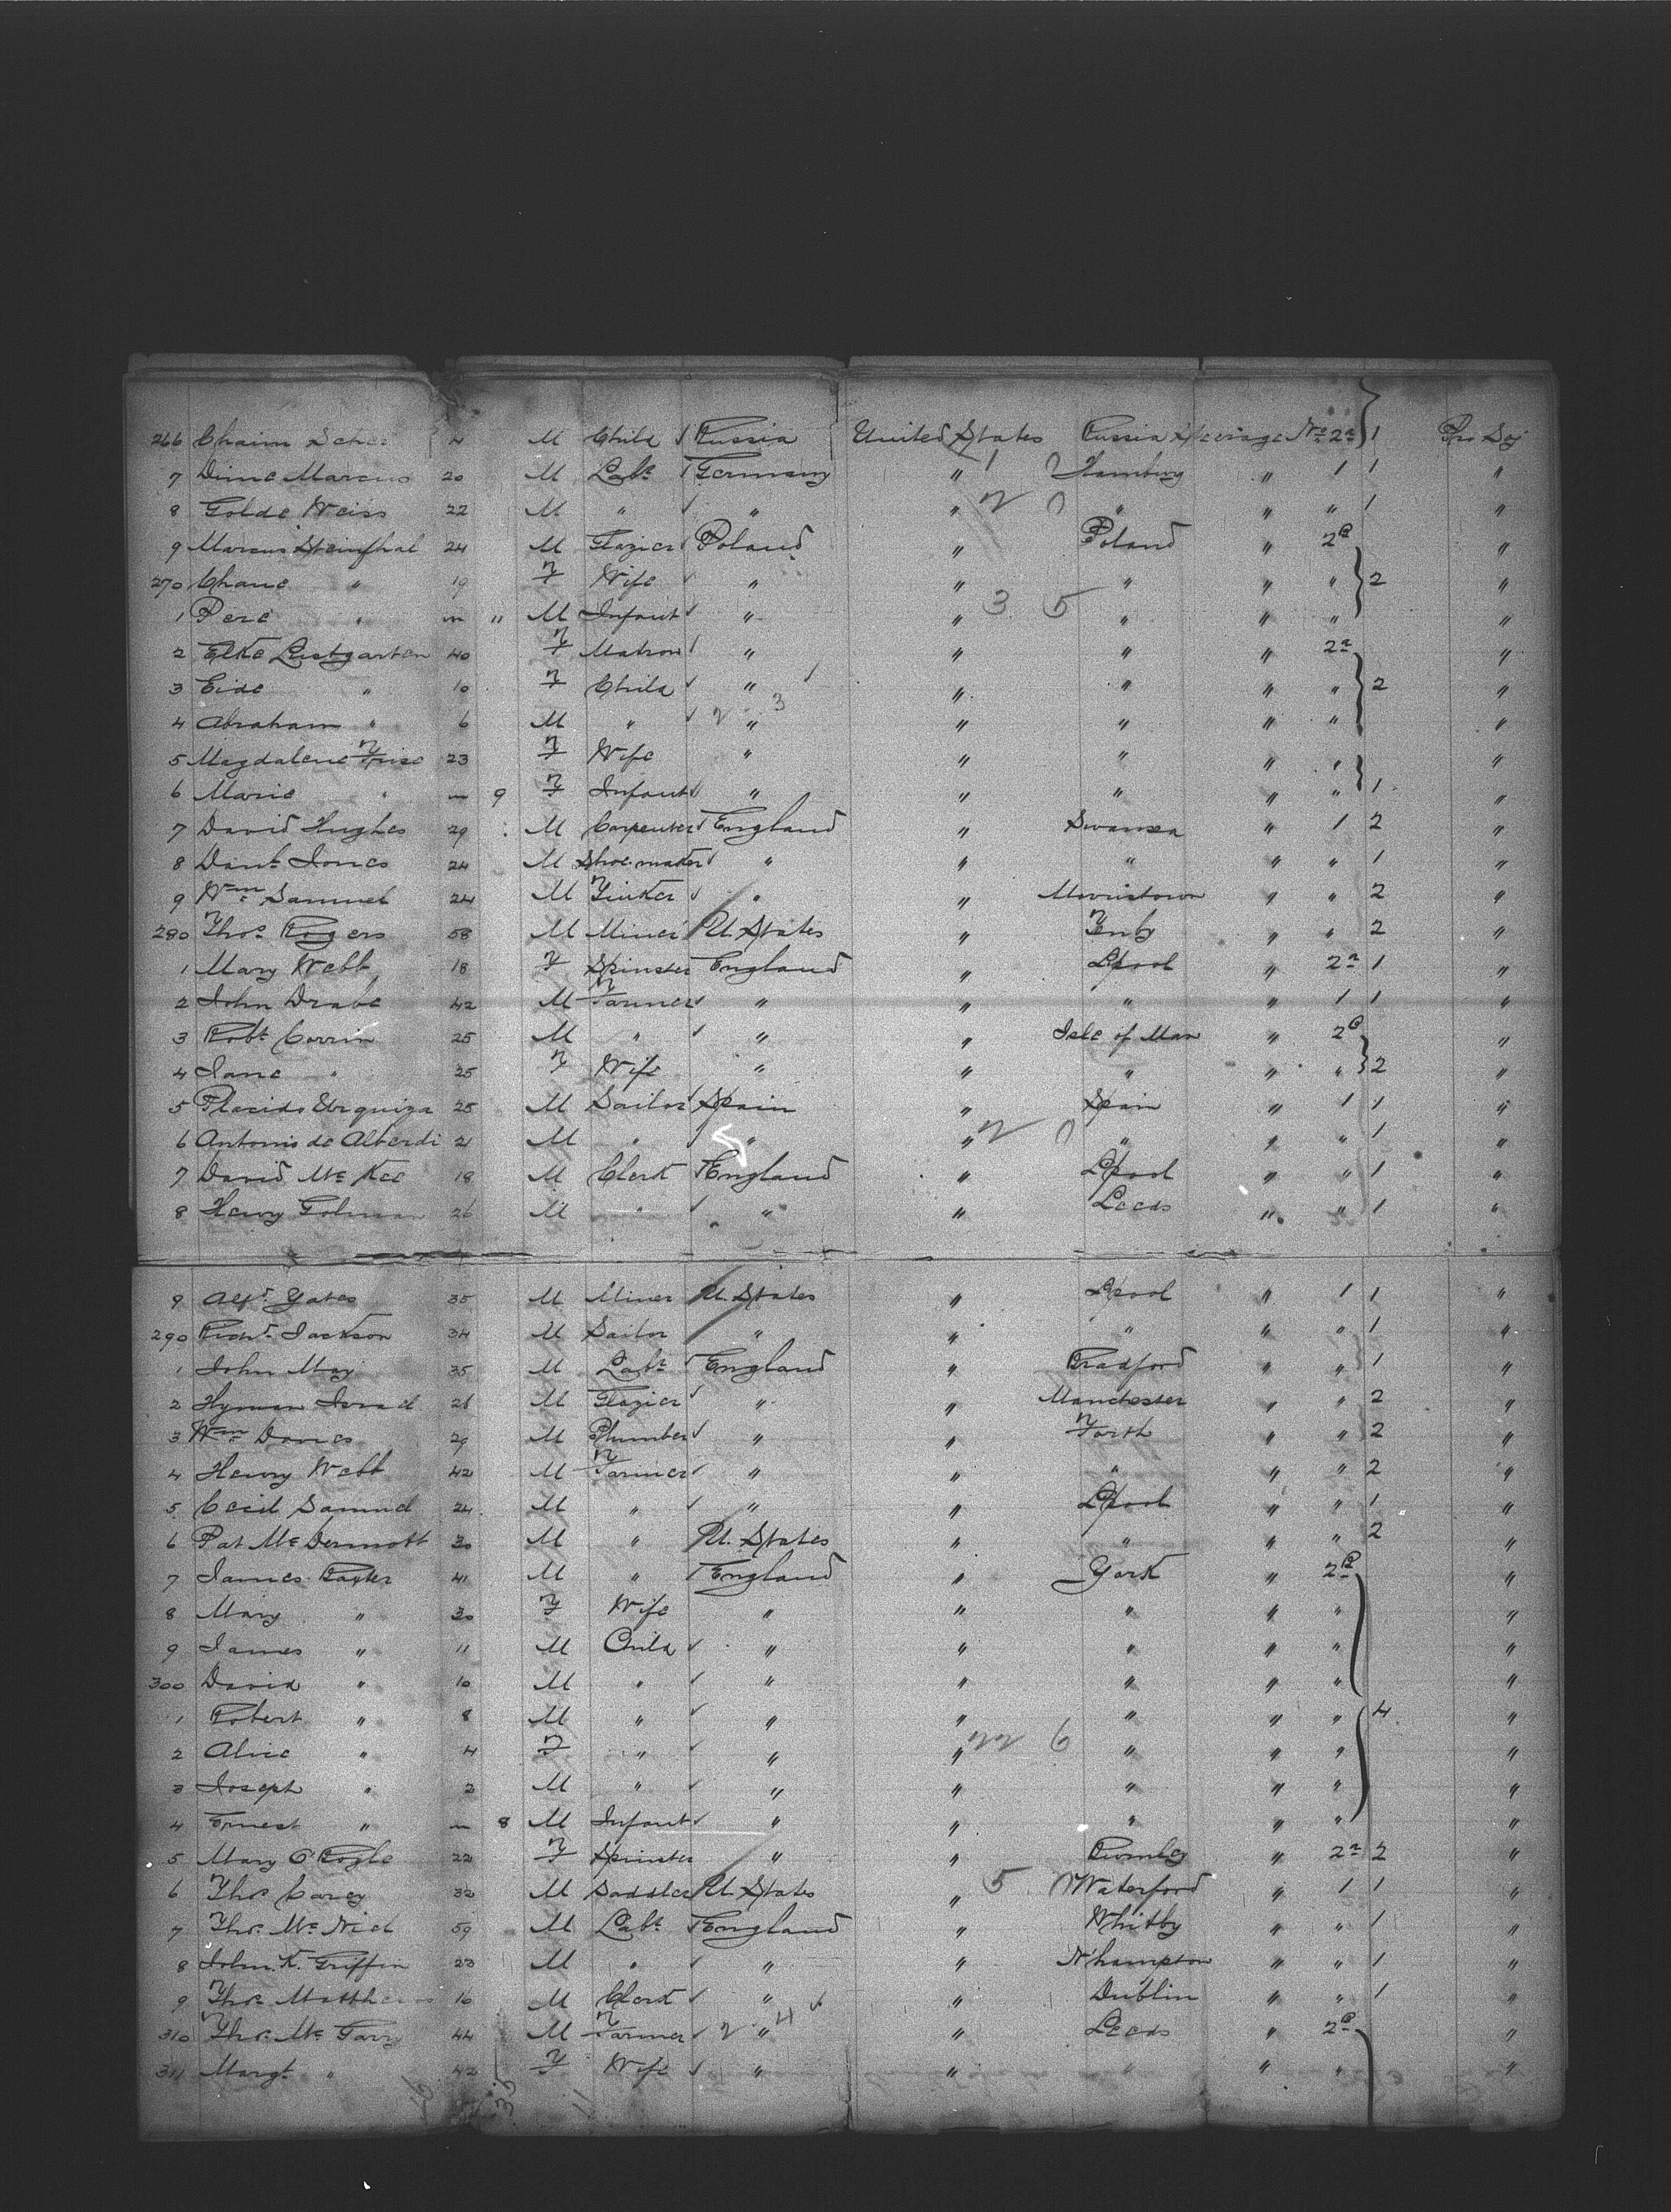 266 Chaim 4 M Child Russia United States Russia Steerage No 2a 1 Pro Soj
7 Dime Marcus 20 M Labr Germany " 1 0 Hamburg " 1 1 "
8 Golde Weiss 22 M " " " 2 0 " " " 1 "
9 Marcus Steinthal 24 M Glazier Poland " Poland " 2B "
270 Chane " 19 F Wife " " " " " 2 "
1 Pere " " M Infant " " 3 5 " " " "
2 Elke Lustgarten 40 F Matron " " " " 2a "
3 Eide " 10 F Child " " " " " 2 "
4 Abraham " 6 M " 2 3 " " " " " "
5 Magdalene 23 F Wife " " " " " "
6 Marie " 9 F Infant " " " " " 1 "
7 David Hughes 29 M Carpenter England " Swansea " 1 2 "
8 Danl Jones 24 M Shoemaker " " " " " 1 "
9 Wm Samuel 24 M " " " " 2 "
280 Thos Rogers 58 M Miner U. States " Tenby " " 2 "
1 Mary Webb 18 F Spinster England " Lpool " 2a 1 "
2 John Drabe 42 M Farmer " " " " 1 1 "
3 Robt Corrin 25 M " " " Isle of Man " 2B "
4 Jane " 25 F Wife " " " " " 2 "
5 Placido Urquiza 25 M Sailor Spain " Spain " 1 1 "
6 Antonio de Alberdi 21 M " " " 2 0 " " " 1 "
7 David McKee 18 M Clerk England " Lpool " " 1 "
8 Henry 26 M " " " Leeds " " 1 "
9 Alfr Yates 35 M Miner U. States " Lpool " 1 1 "
290 Richd Jackson 34 M Sailor " " " " " 1 "
1 John May 35 M Labr England " Bradford " " 1 "
2 Hyman Israel 21 M Glazier " " Manchester " " 2 "
3 Wm Davies 29 M Plumber " " " " 2 "
4 Henry Webb 42 M Farmer " " " " " 2 "
5 Cecil Samuel 24 M " " " Lpool " " 1 "
6 Pat McDermott 30 M " U. States " " " " 2 "
7 James Baxter 41 M " England " York " 2B "
8 Mary " 30 F Wife " " " " " "
9 James " 11 M Child " " " " " "
300 David " 10 M " " " " " " "
1 Robert " 8 M " " " " " " 4 "
2 Alice " 4 F " " " 22 6 " " " "
3 Joseph " 2 M " " " " " " "
4 Ernest " 8 M Infant " " " " " "
5 Mary O'Boyle 22 F Spinster " " " 2a 2 "
6 Thos Carey 32 M Saddler U. States " 5 0 Waterford " 1 1 "
7 Thos McNiel 59 M Labr England " Whitby " " 1 "
8 John K. Griffin 23 M " " " N'hampton " " 1 "
9 Thos 16 M Clerk " " Dublin " " 1 "
310 Thos 44 M Farmer 2 " 4 " Leeds " 2B "
311 Margt " 42 F Wife " " " " " "